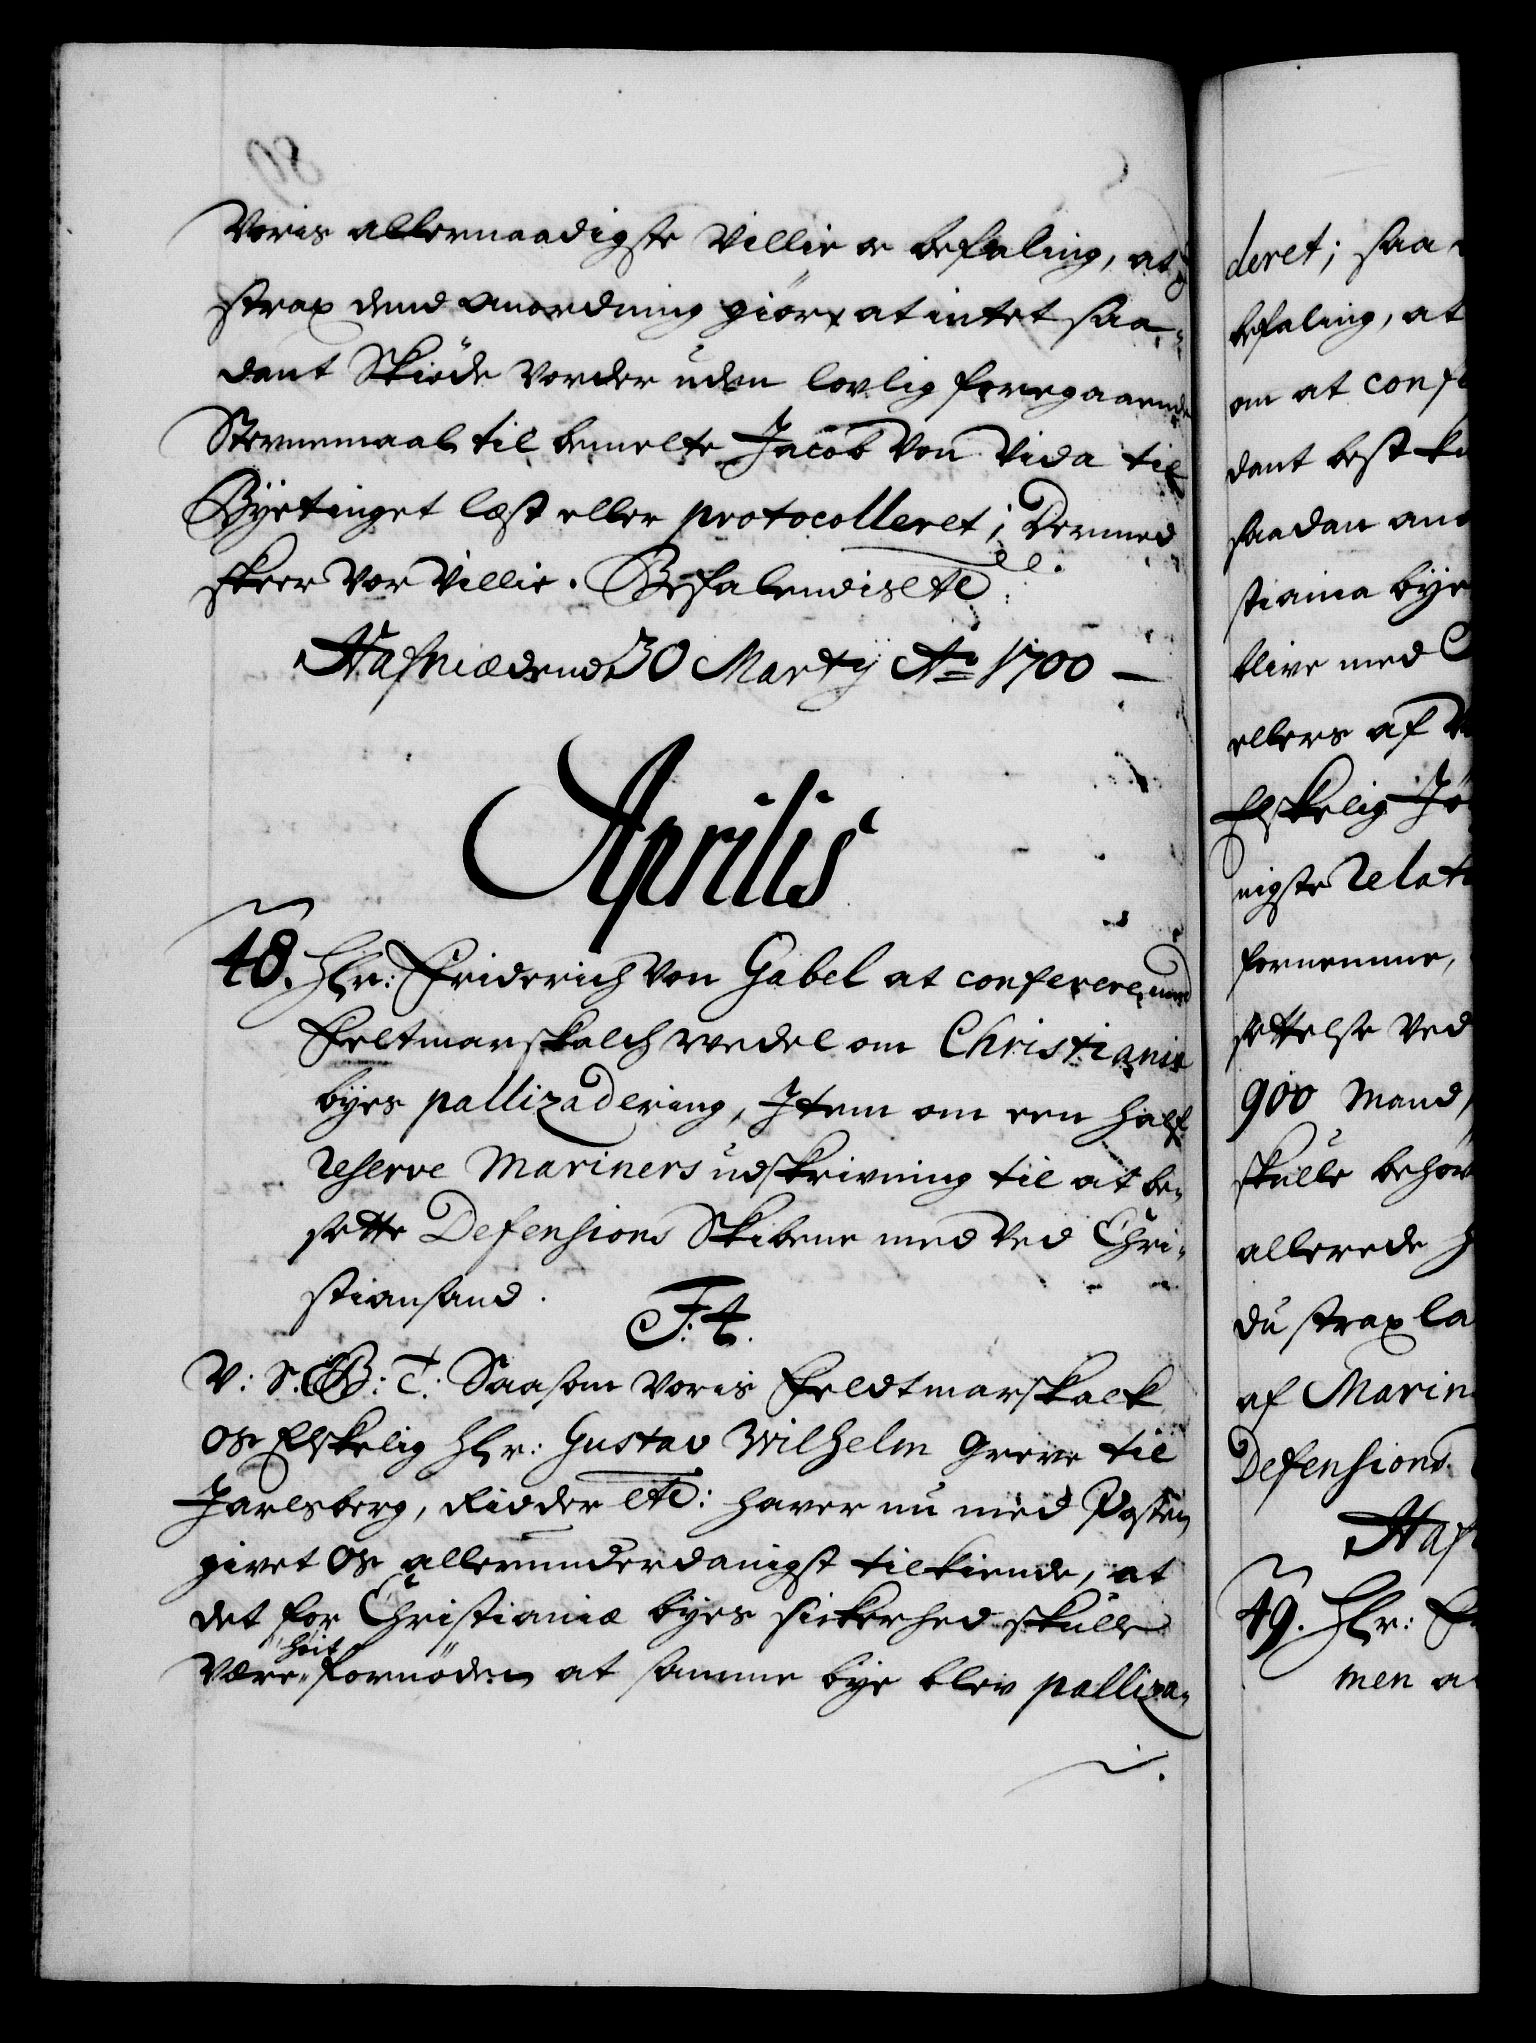 Voris allernaadigste Villie oc befaling, at
strax dend anordning giöres at intet saa-
dant Skiöde vorder uden lovlig foregaaende
Stevnemaal til bemelte Jacob Von Vida til
Byetinget læst eller protocolleret; Dermed
skeer Vor Villie. Befalendis etc:
Hafniæ dend 30 Martij Ao 1700 —
Aprilis
48. Hr: Friderich Von Gabel at conferere med
Feltmarskalch Wedel om Christianiæ
byes pallizadering, Item om een half
reserve Mariners udskrivning til at be-
sette Defensions Skibene med ved Chri-
stiansand.
F: 4.
V: S. G. B: T: Saasom Voris Feldtmarskalk
Os Elskelig Hr: Gustav Wilhelm Greve til
Jarlsberg, Ridder etc: haver nu med Posten
givet Os allerunderdanigst tilkiende, at
det for Christianiæ byes sickerhed skulle
höit
være fornöden at samme bye blev palliza-
deret; saa
befaling, at
om at conf
dant best
saadan
stiania bye
blive med
ellers af
Elskelig
nigste Relat
fornemme,
settelse ved
900 Mand,
skulle behöv
allerede
du strax la
af Marin
Defensions
Haf
49. Hr:
men a